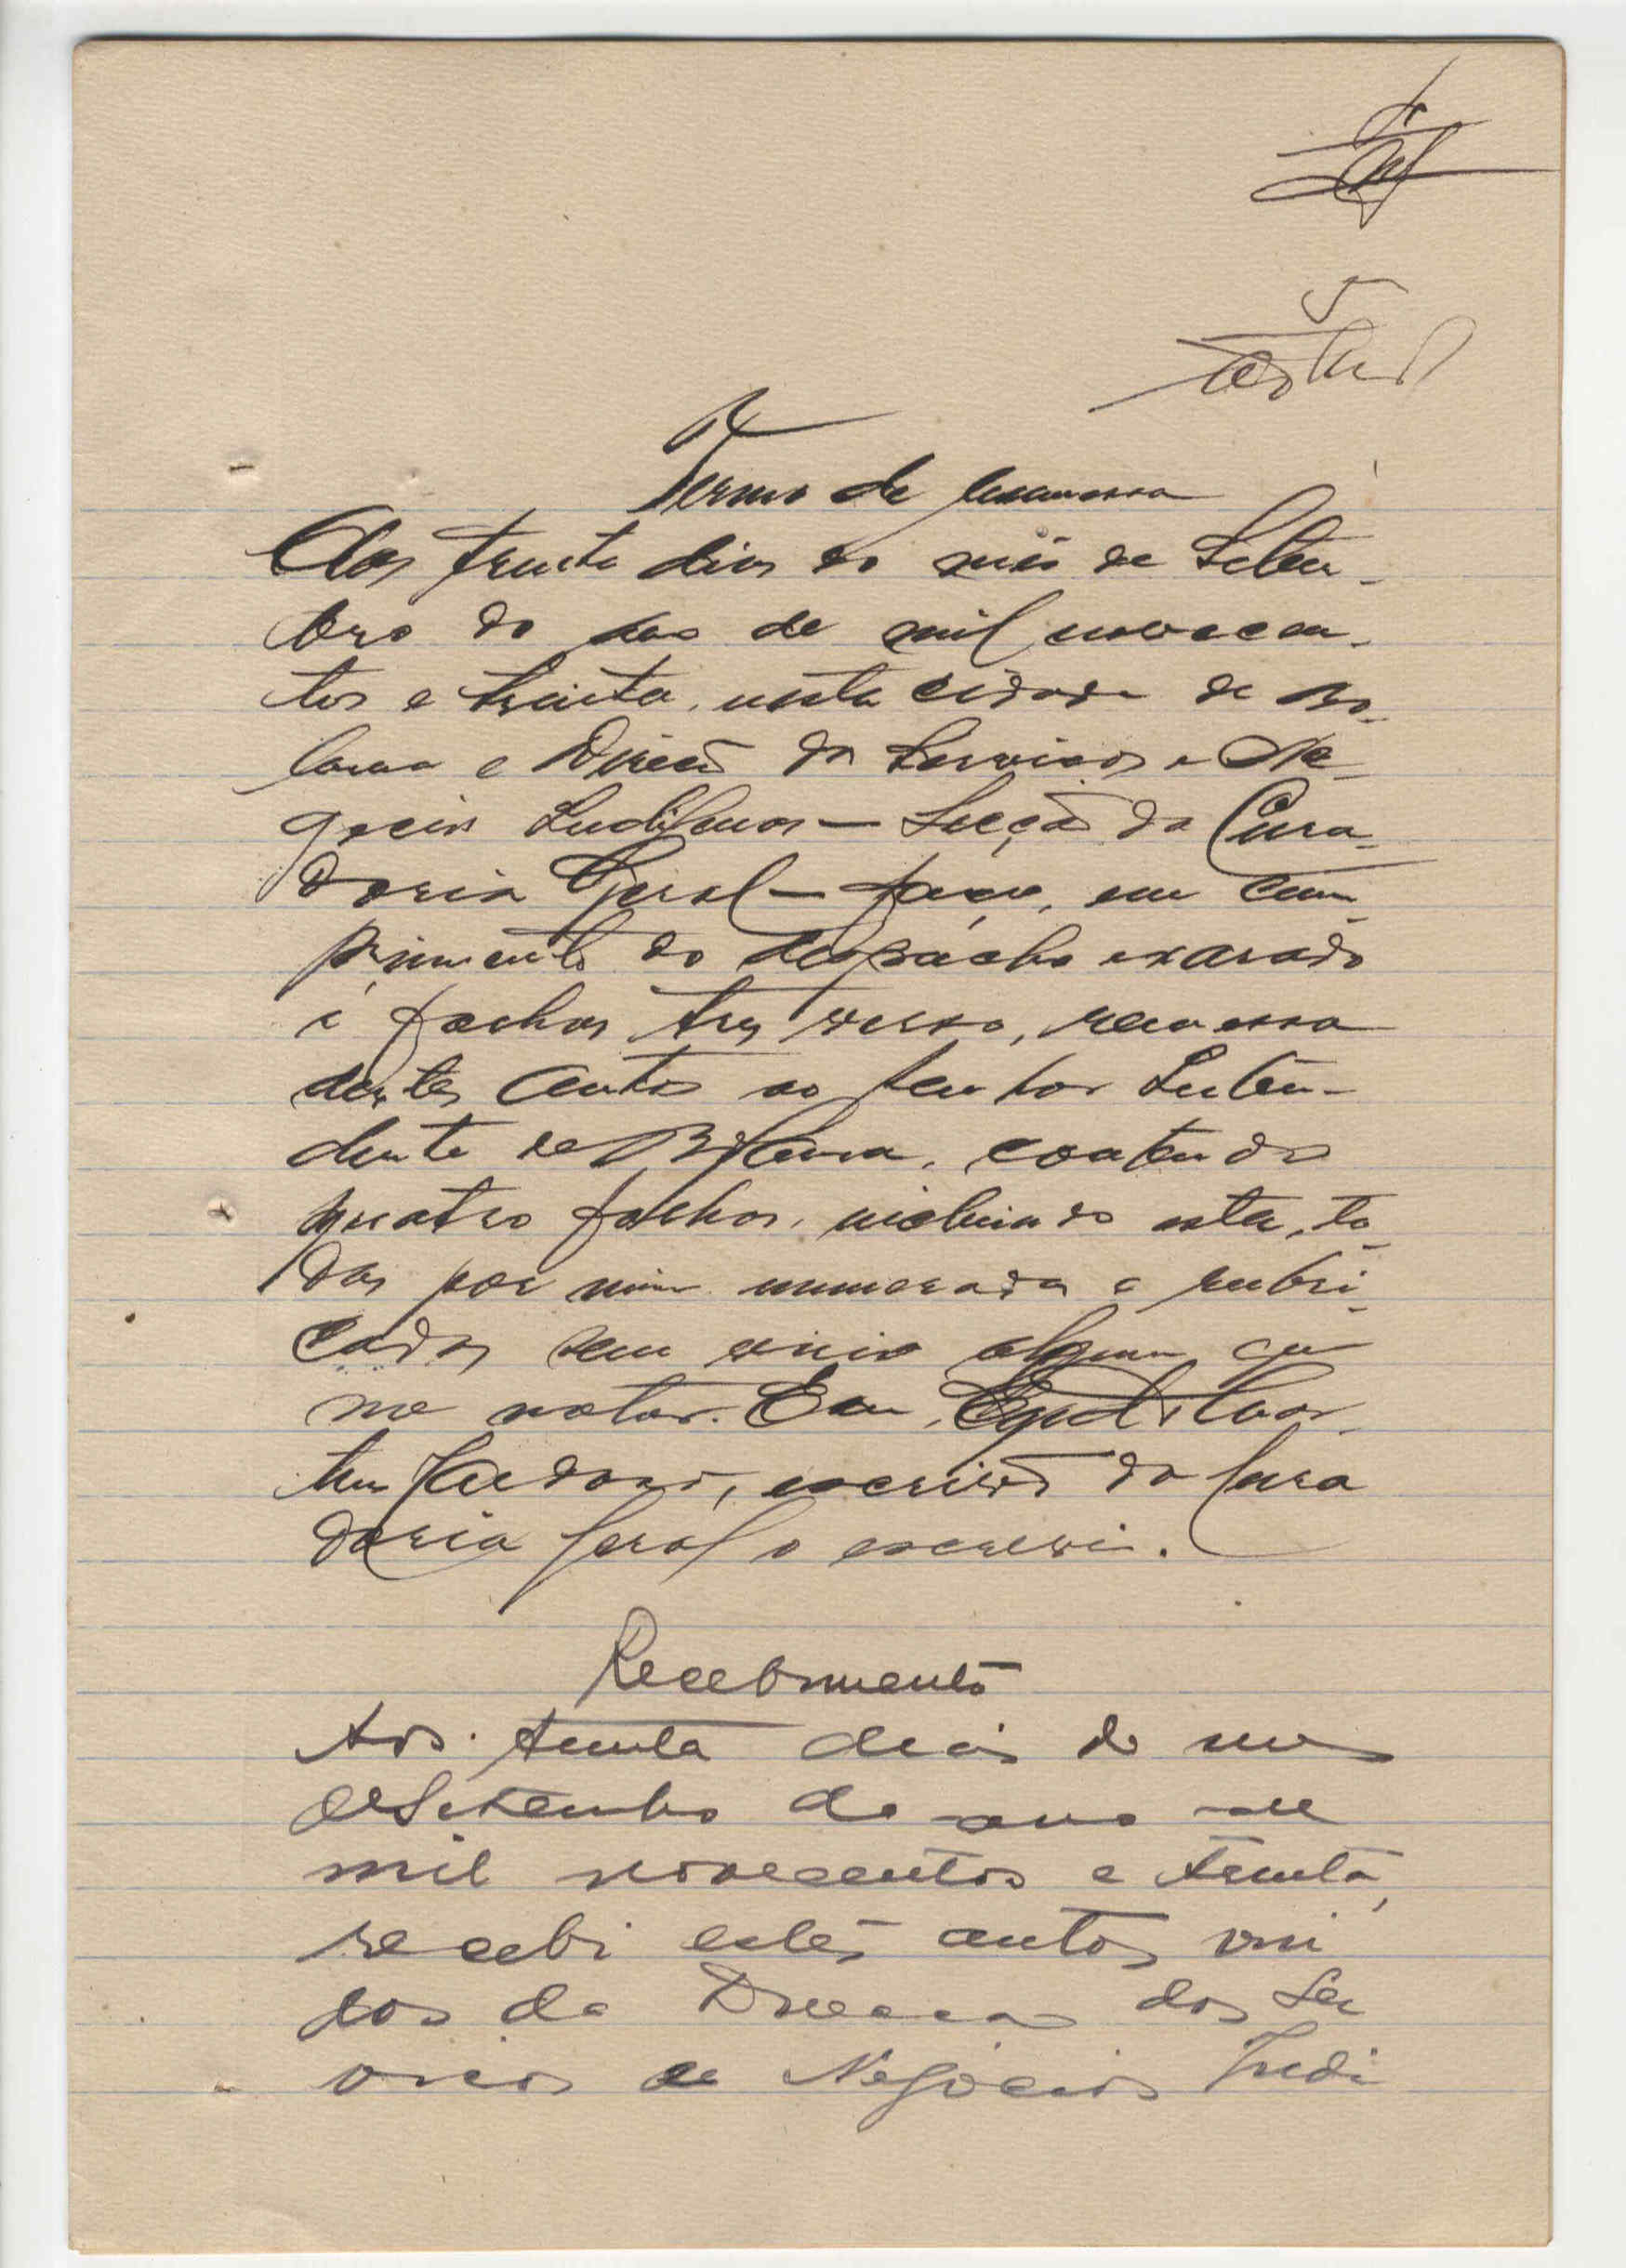 4
5
Termo de remessa
Aos trinta dias do mês de Setem-
bro do ano de mil novecen-
tos e trinta, nesta cidade de Bo-
lama e Direcção dos Serviços e Ne-
gocios Indígenas — Secção da Cura-
doria Geral — faço, em cum-
primento do despacho exarado
a folhas tres verso, remessa
destes autos ao senhor Inten-
dente de Bolama, contendo
quatro folhas, incluindo esta, to-
das por mim numeradas e rubri-
cadas sem vicio algum que
me notar. Eu,
Cardoso, escrivão da Cura
doria Geral o escrevi.
Recebimento
Aos trinta dias do mes
de Setembro do ano de
mil novecentos e trinta,
recebi estes autos vin
dos da Direcção dos Ser
viços e Negócios Indi